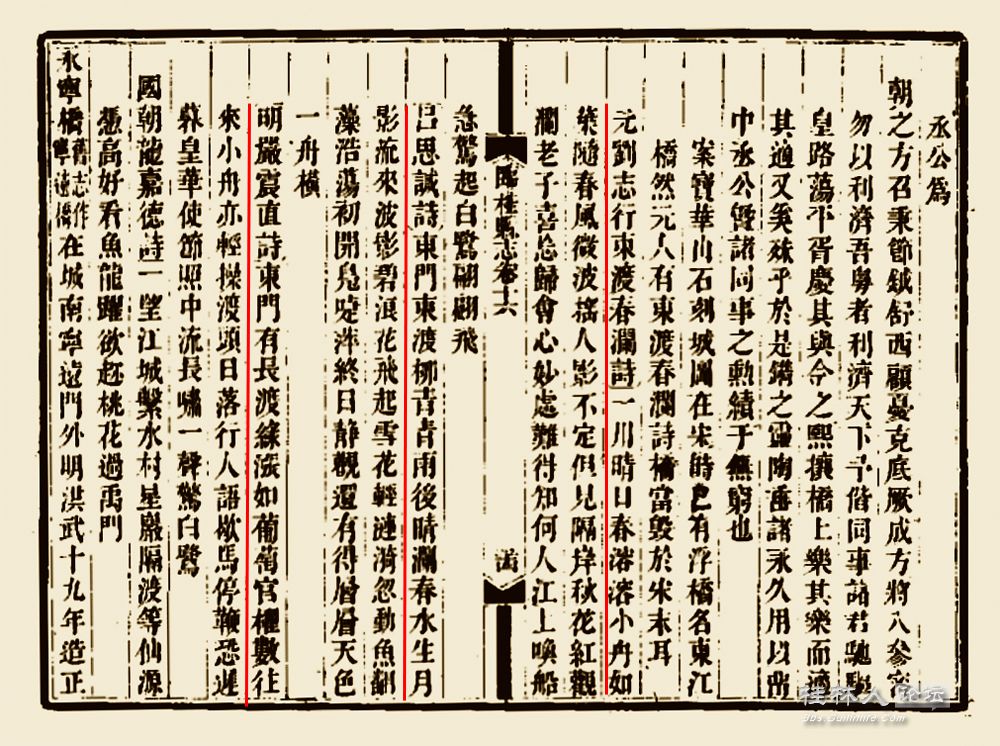 丞公爲
朝之方召秉節鉞舒西顧憂克底厥成方將入參密
勿以利濟吾粵者利濟天下予偕同事諸君馳驅
皇路蕩平胥慶其與令之熙攘橋上樂其樂而適
其適又奚殊乎於是鐫之靈陶垂諸永久用以
中丞公曁諸同事之勲績于無窮也
案寶華山石刻城圖在宋時已有浮橋名東江
橋然元人有東渡春瀾詩橋當毀於宋末耳
元劉志行東渡春瀾詩一川晴日春溶溶小舟如
葉隨春風微波搖人影不定但見隔岸秋花紅觀
瀾老子喜忘歸會心妙處難得知何人江上喚船
急驚起白鷺翩翩飛
臨桂縣志卷十六
呂思誠詩東門東渡柳青青雨後晴瀾春水生月
影流來波影碧浪花飛起雪花輕漣漪忽動魚翻
藻浩蕩初開鳧唼萍終日静觀還有得層層天色
一舟橫
明嚴震直詩東門有長渡綠漲如葡萄官櫂數往
來小舟亦輕操渡頭日落行人語歇馬停鞭恐遲
暮皇華使節照中流長嘯一聲驚白鷺
國朝龍嘉德詩一望江城繫水村星巖隔渡等仙源
憑高好看魚龍躍欲趁桃花過禹門
永寧橋舊志作寧遠橋在城南寧遠門外明洪武十九年造正
桂林人论坛
bbs.Guilinlife.Com